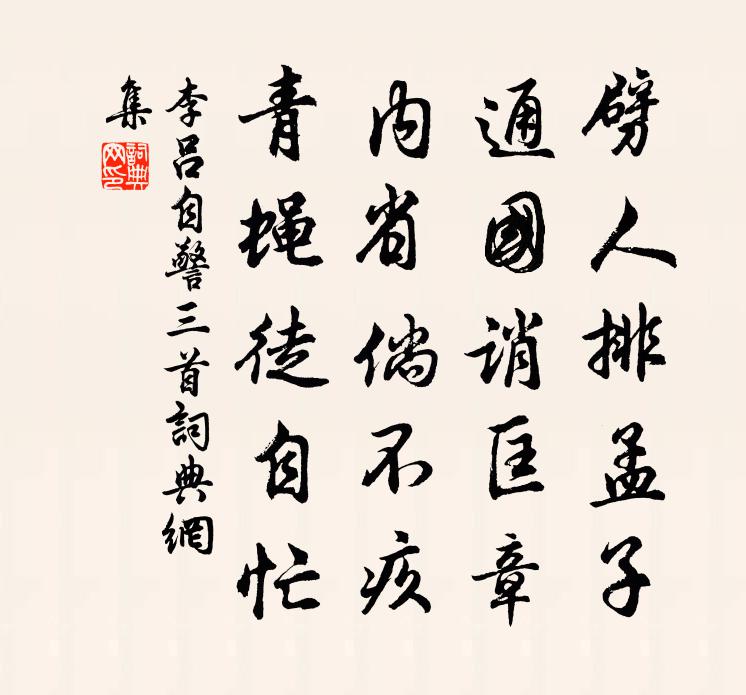 劈人排孟子
通國誚匡章
内省倘不疚
青蝇徒自忙
李呂自警三首詞典網
集
詞典網印